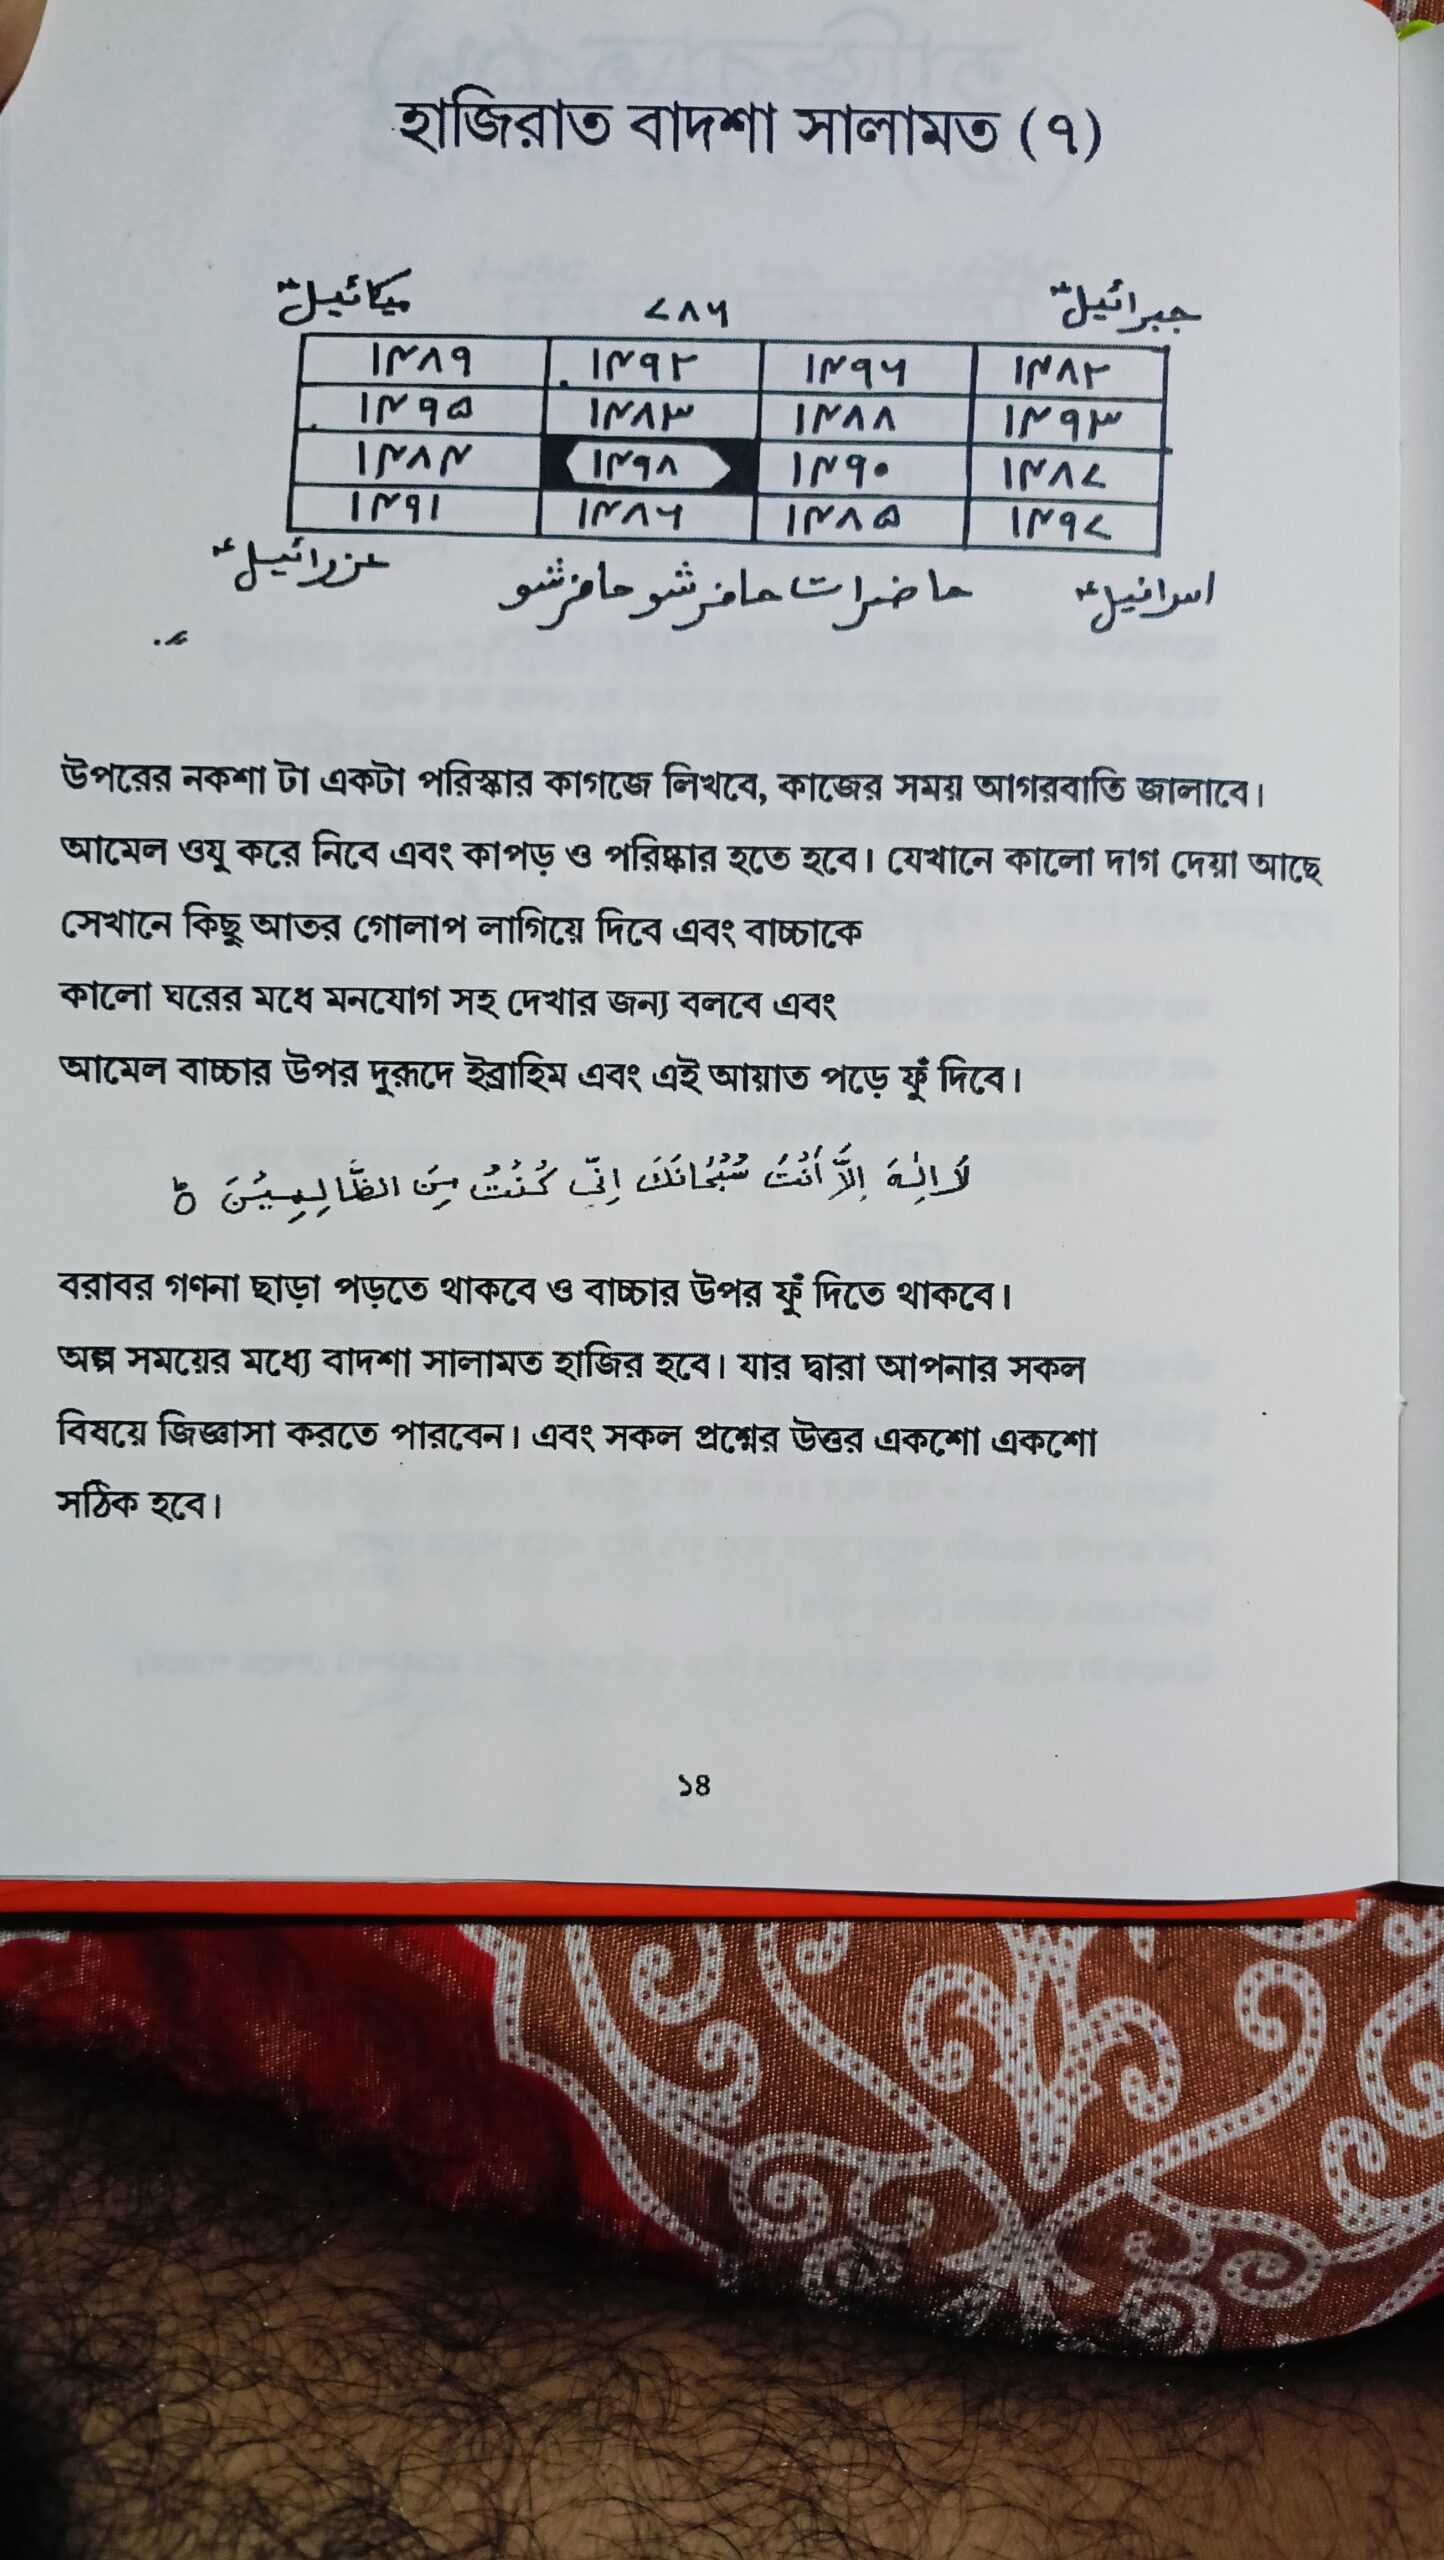 হাজিরাত বাদশা সালামত (৭)
میکائیلؑ ۷۸۶ جبرائیلؑ
۱۴۸۹ ۱۴۹۲ ۱۴۹۶ ۱۴۸۲
۱۴۹۵ ۱۴۸۳ ۱۴۸۸ ۱۴۹۳
۱۴۸۴ ۱۴۹۸ ۱۴۹۰ ۱۴۸۷
۱۴۹۱ ۱۴۸۶ ۱۴۸۵ ۱۴۹۷
عزرائیلؑ حاضرات حافرشو حافرشو اسرافیلؑ
উপরের নকশা টা একটা পরিস্কার কাগজে লিখবে, কাজের সময় আগরবাতি জালাবে।
আমেল ওযু করে নিবে এবং কাপড় ও পরিষ্কার হতে হবে। যেখানে কালো দাগ দেয়া আছে
সেখানে কিছু আতর গোলাপ লাগিয়ে দিবে এবং বাচ্চাকে
কালো ঘরের মধে মনযোগ সহ দেখার জন্য বলবে এবং
আমেল বাচ্চার উপর দুরূদে ইব্রাহিম এবং এই আয়াত পড়ে ফুঁ দিবে।
لَا اِلٰهَ اِلَّا اَنْتَ سُبْحَانَكَ اِنِّى كُنْتُ مِنَ الظَّالِمِيْنَ
বরাবর গণনা ছাড়া পড়তে থাকবে ও বাচ্চার উপর ফুঁ দিতে থাকবে।
অল্প সময়ের মধ্যে বাদশা সালামত হাজির হবে। যার দ্বারা আপনার সকল
বিষয়ে জিজ্ঞাসা করতে পারবেন। এবং সকল প্রশ্নের উত্তর একশো একশো
সঠিক হবে।
১৪